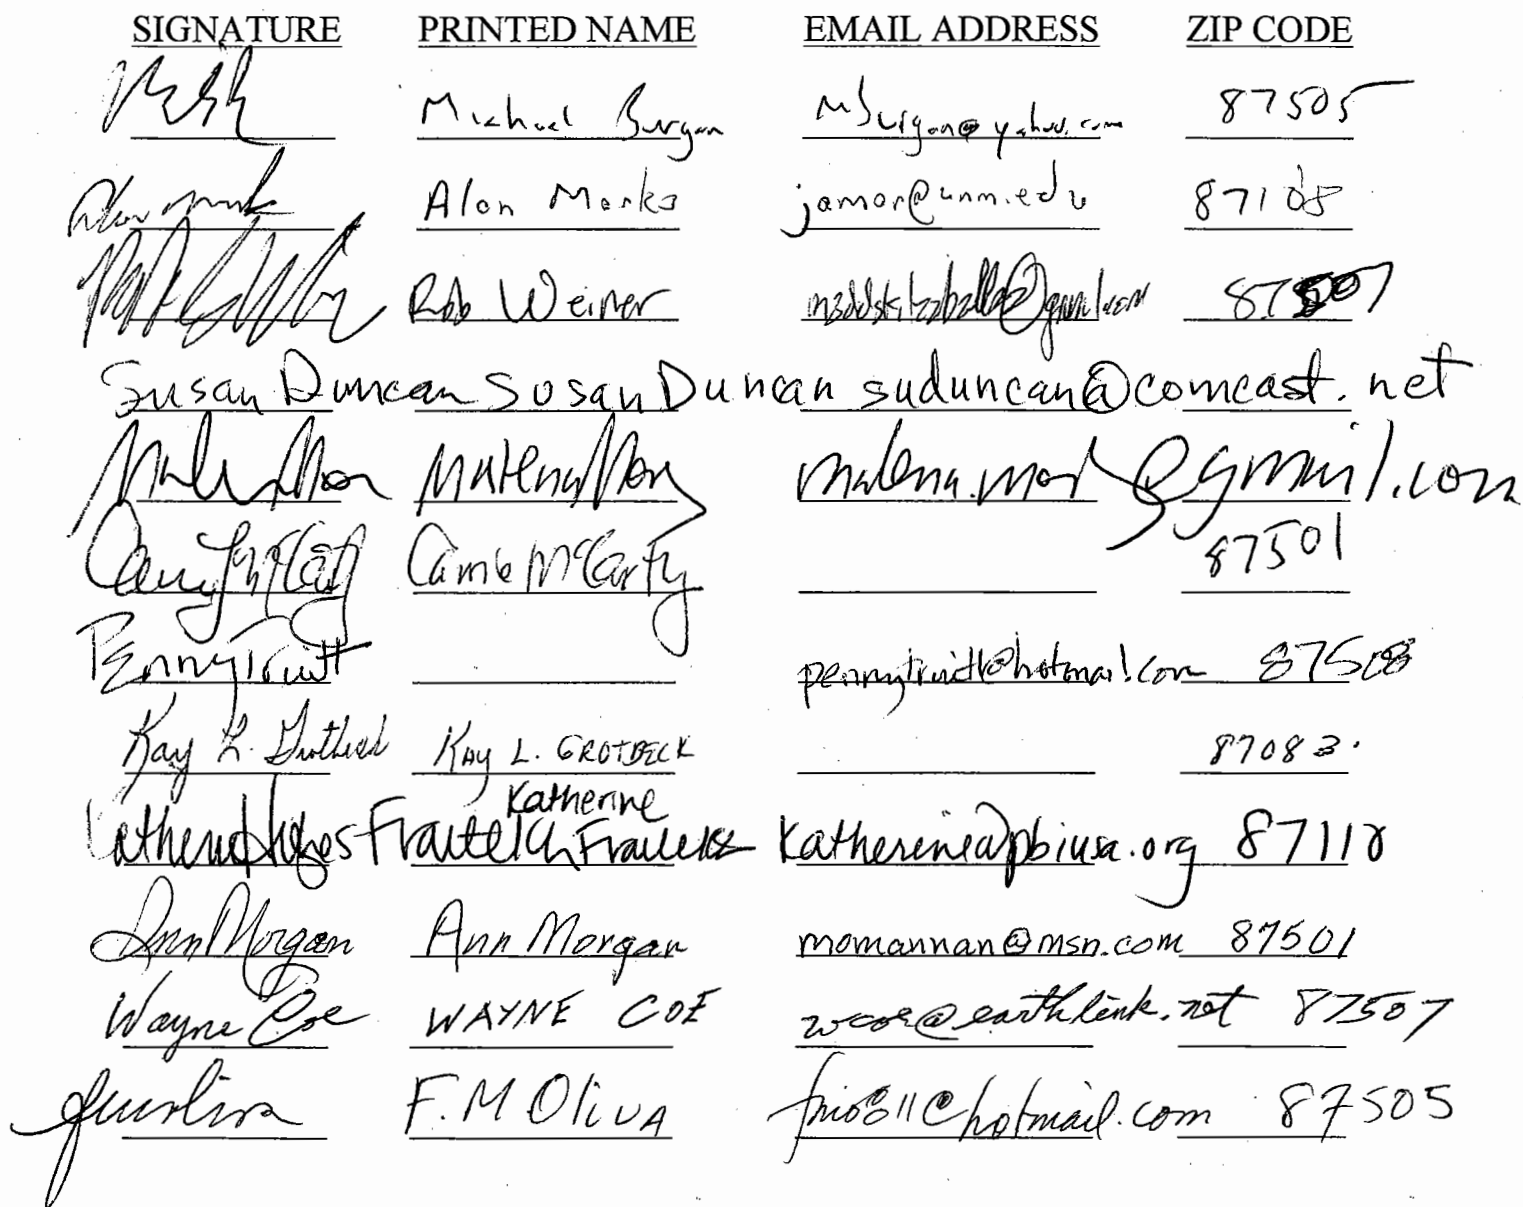 SIGNATURE PRINTED NAME EMAIL ADDRESS ZIP CODE
Michael Burgan mburgan@yahoo.com 87505
Alan Marks jamar@unm.edu 87108
Rob Weiner 87507
Susan Duncan Susan Duncan suduncan@comcast.net
Malena Mor @gmail.com
Carrie McCarty 87501
Penny Truitt pennytruitt@hotmail.com 87508
Kay L. Grotbeck KAY L. GROTBECK 87083
Katherine
Katherine Hughes Fraiteich katherine@pbiusa.org 87110
Ann Morgan Ann Morgan momannan@msn.com 87501
Wayne Coe WAYNE COE wcoe@earthlink.net 87507
F.M OlivA fmo811@hotmail.com 87505